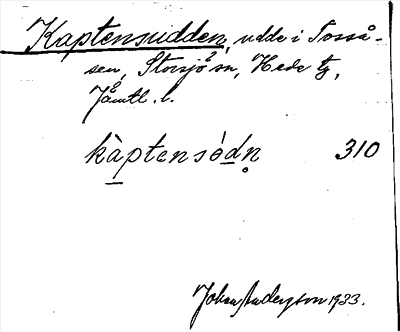 Kaptensudden, udde i Tosså-
sen, Storsjö sn, Hede tg,
Jämtl. l.
kàptensòdn̥ 310
Johan Anderson 1933.